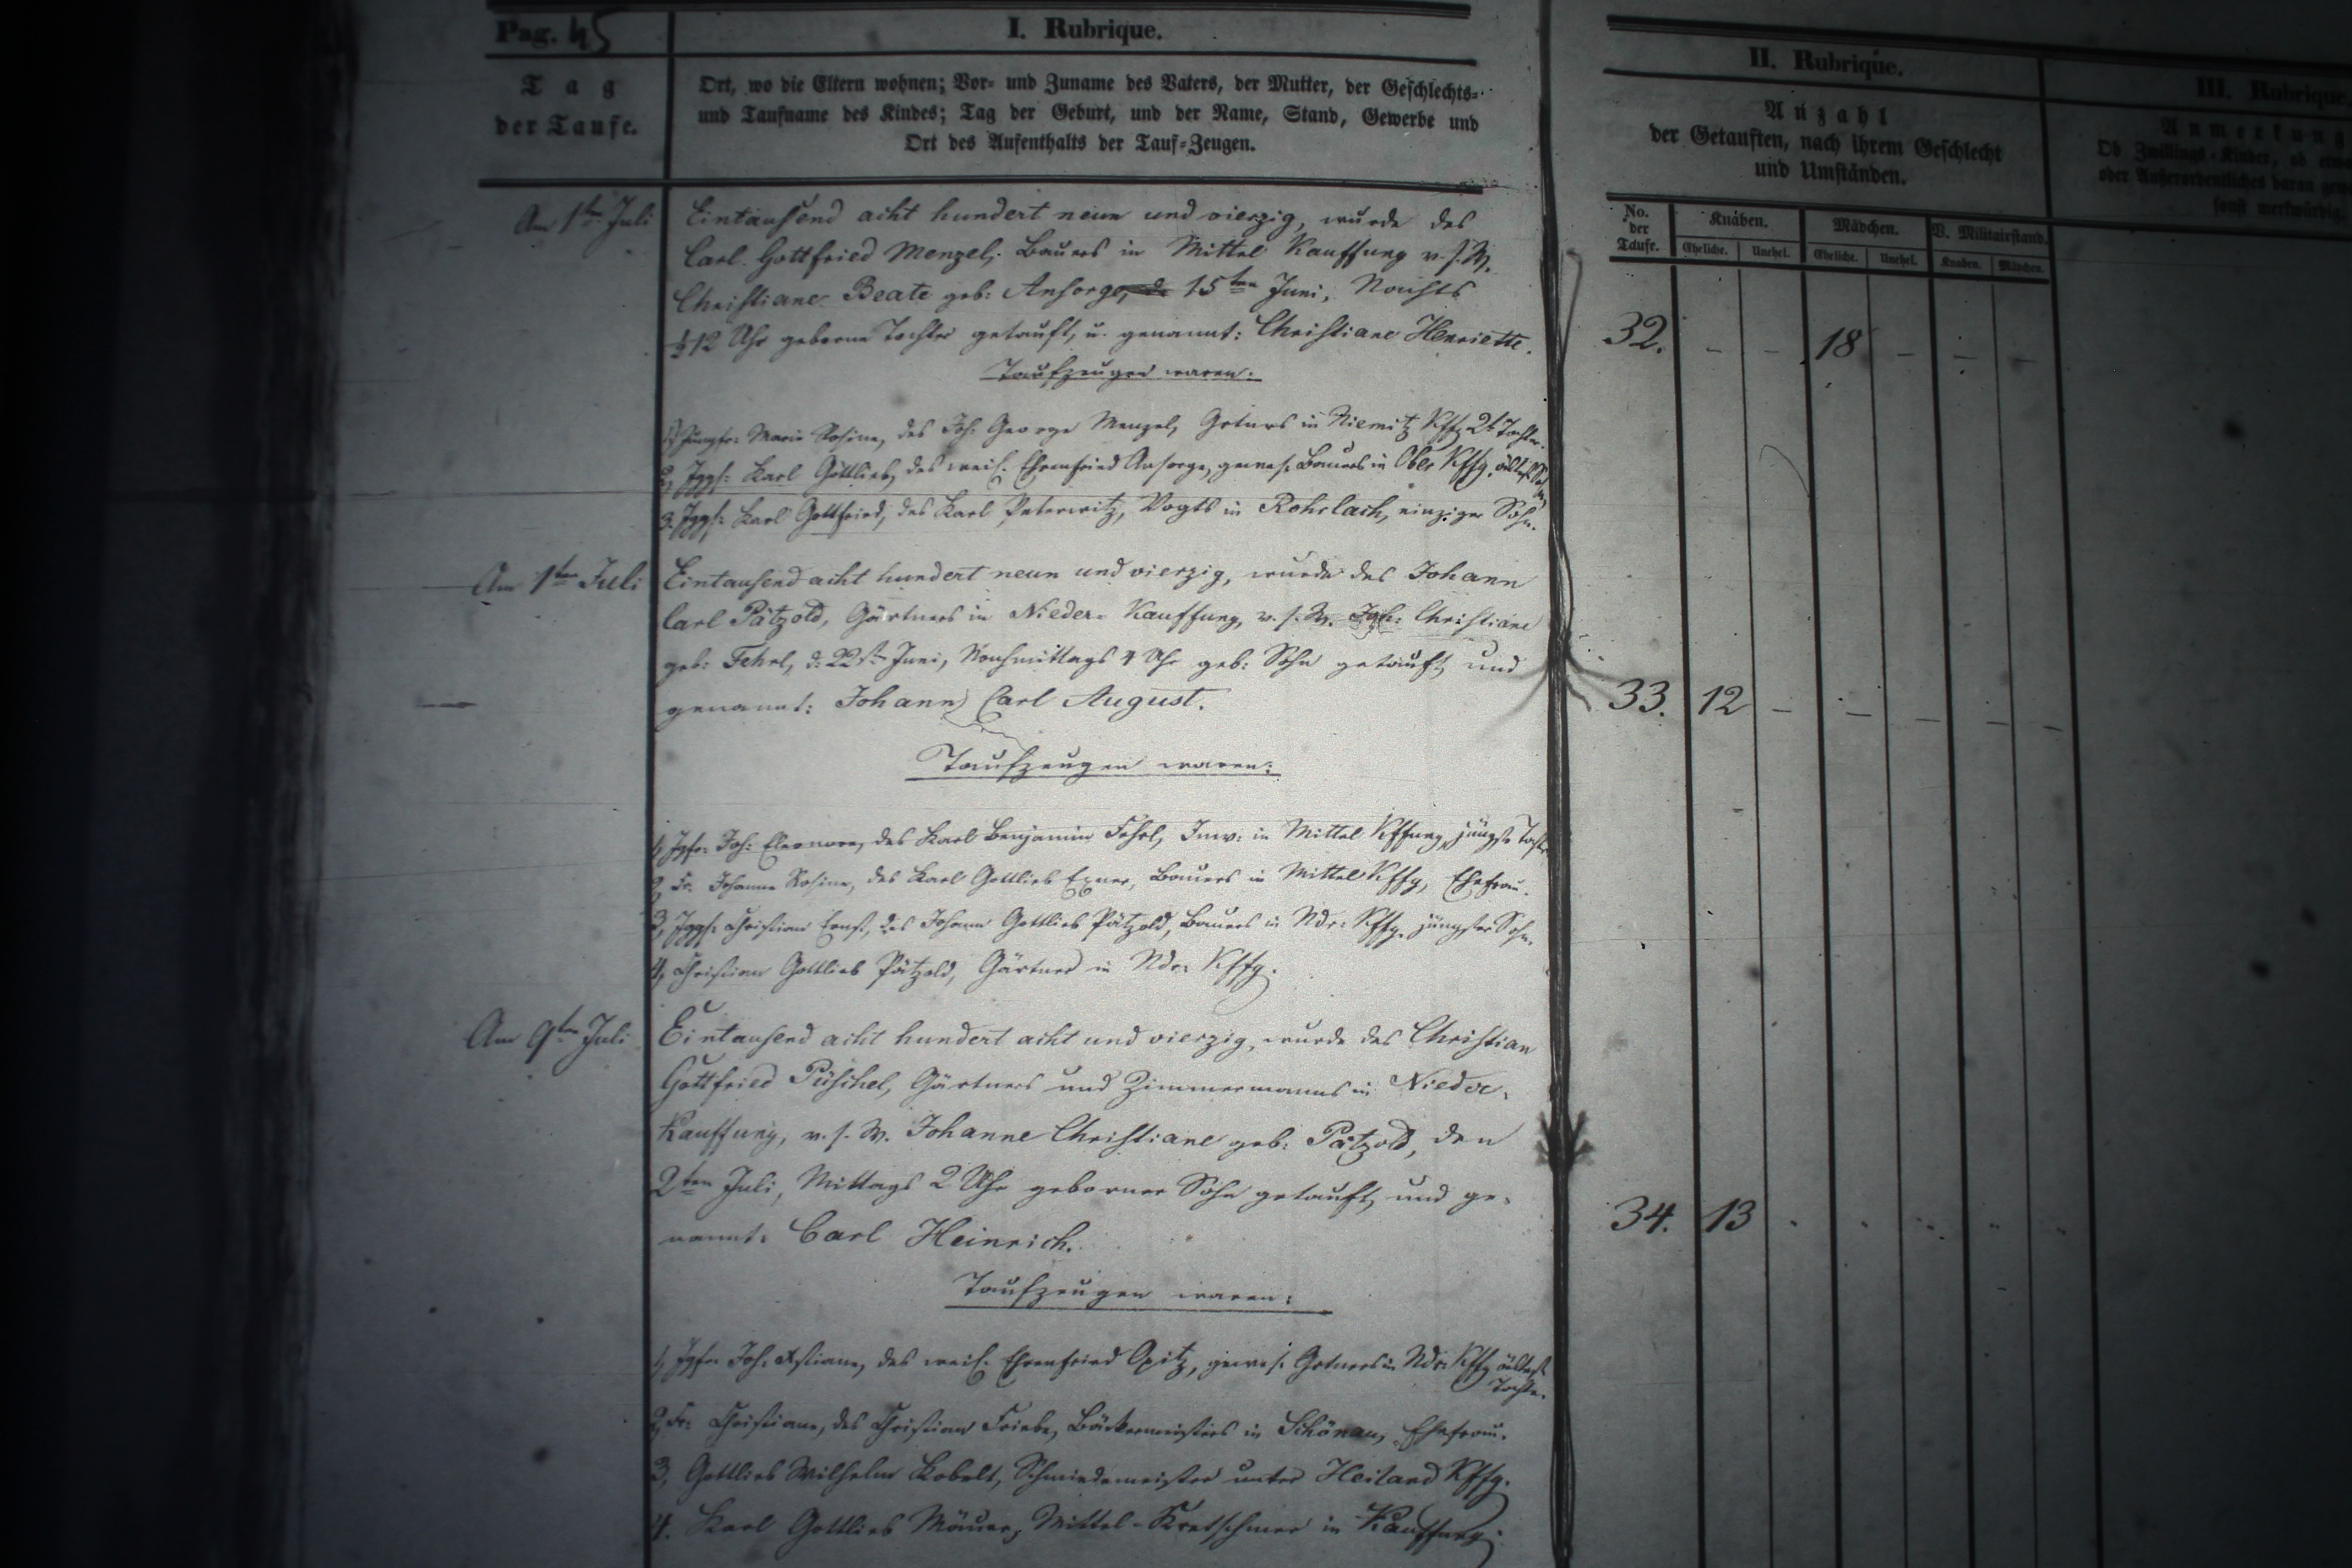 Pag. 45
I. Rubrique.
Tag
der Taufe.
Ort, wo die Eltern wohnen; Vor- und Zuname des Vaters, der Mutter, der Geschlechts-
und Taufname des Kindes; Tag der Geburt, und der Name, Stand, Gewerbe und
Ort des Aufenthalts der Tauf-Zeugen.
II. Rubrique.
Anzahl
der Getauften, nach ihrem Geschlecht
und Umständen.
No.
der
Taufe.
Knaben.
Mädchen.
V. Militairstand.
Eheliche.
Unehel.
Eheliche.
Unehel.
Knaben.
Mädchen.
III. Rubrique
Anmerkung
Ob Zwillings-Kinder, ob
oder Außerordentliches daran
sonst merkwürdig
Am 1ten Juli
Eintausend acht hundert neun und vierzig, wurde des
Carl Gottfried Menzel, Bauers in Mittel Kauffung v. s. W.
Christiane Beate geb: Ansorge, 15ten Juni, Nachts
½12 Uhr geborne Tochter getauft, u. genannt: Christiane Henriette.
Taufzeugen waren:
1, Jungfr: Marie Rosine, des Joh: George Menzel, Grtnrs in Kffg 2t Tochter.
2, Jggs: Karl Gottlieb, des weil. Ehrenfried Ansorge, gewes. Bauers in Ober Kffg. ältest. Sohn
3. Jggs: Karl Gottfried, des Karl Peterwitz, Vogts in Rohrlach, einziger Sohn.
32. – – 18 – – –
Am 1ten Juli
Eintausend acht hundert neun und vierzig, wurde des Johann
Carl Pätzold, Gärtners in Nieder-Kauffung, v. s. W. Joh: Christiane
geb: Fehrl, d. 22st. Juni, Nachmittags 4 Uhr geb: Sohn getauft und
genannt: Johann Carl August.
Taufzeugen waren:
1, Jgfr: Joh: Eleonore, des Karl Benjamin Fehrl, Inw: in Mittel Kffung, jüngste Tochter
2, Fr. Johanne Rosine, des Karl Gottlieb Exner, Bauers in Mittel Kffg, Ehefrau.
3, Jggs: Christian Ernst, des Johann Gottlieb Pätzold, Bauers in Ndr: Kffg. jüngster Sohn.
4, Christian Gottlieb Pätzold, Gärtner in Ndr: Kffg.
33. 12 – – – – –
Am 9ten Juli
Eintausend acht hundert acht und vierzig, wurde des Christian
Gottfried Püschel, Gärtners und Zimmermanns in Nieder-
Kauffung, v. s. W. Johanne Christiane geb: Pätzold, den
2ten Juli, Mittags 2 Uhr geborner Sohn getauft und ge-
nannt: Carl Heinrich.
Taufzeugen waren:
1, Jgfr. Joh: Xstiane, des weil. Ehrenfried Opitz, gewes. Grtners in Ndr: Kffg älteste
Tochter.
2, Fr: Christiane, des Christian Friebe, Bäckermeisters in Schönau, Ehefrau.
3, Gottlieb Wilhelm Kobelt, Schmiedemeister unter Heiland Kffg.
4. Karl Gottlieb Mäuer, Mittel-Kretschmer in Kauffung.
34. 13